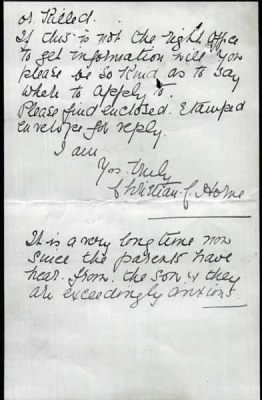 or Killed.
If this is not the right Office
to get information will you
please be so kind as to say
where to apply to.
Please find enclosed. Stamped
envelope for reply.
I am
Yos. truly
Christian. C. Horne
It is a very long time now
since the parents have
hear. from. the son & they
are exceedingly anxious.